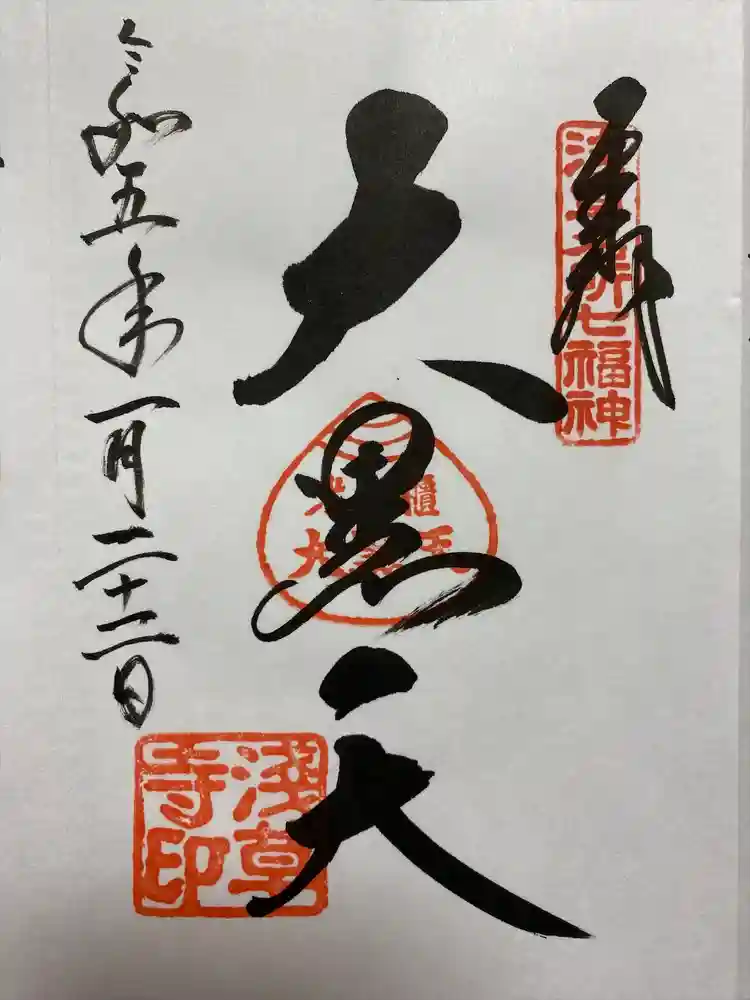 奉拝
浅草名所七福神
大黒天
令和五年一月二十二日
浅草寺印